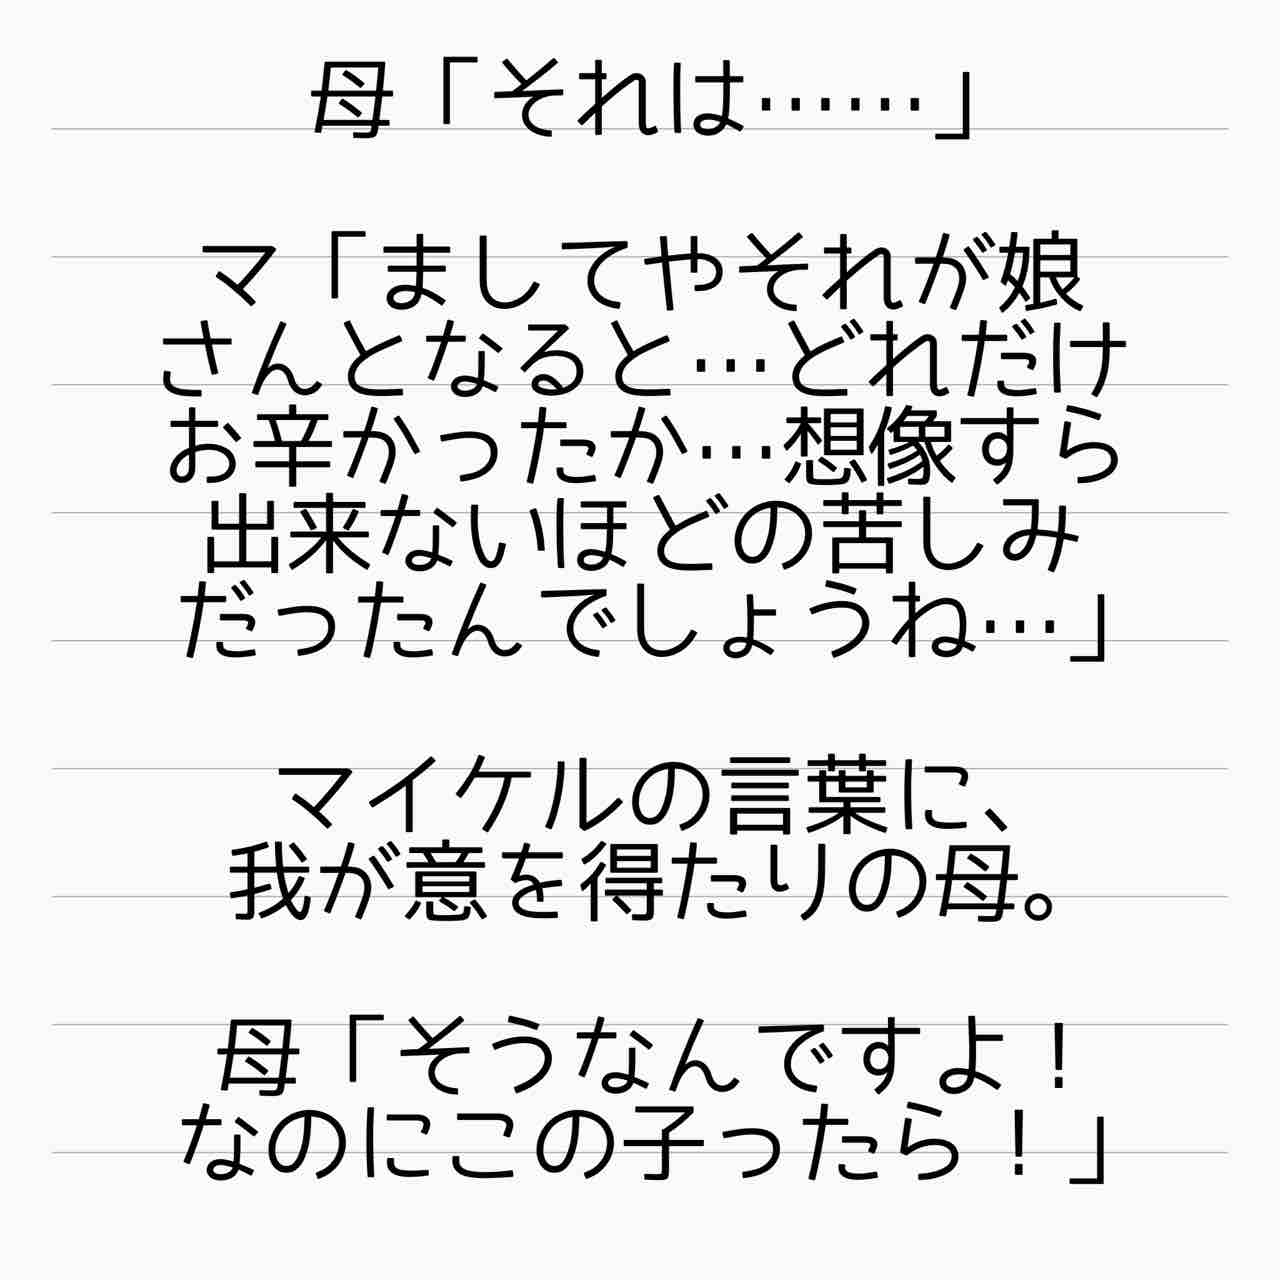 母「それは……」
マ「ましてやそれが娘
さんとなると…どれだけ
お辛かったか…想像すら
出来ないほどの苦しみ
だったんでしょうね…」
マイケルの言葉に、
我が意を得たりの母。
母「そうなんですよ！
なのにこの子ったら！」